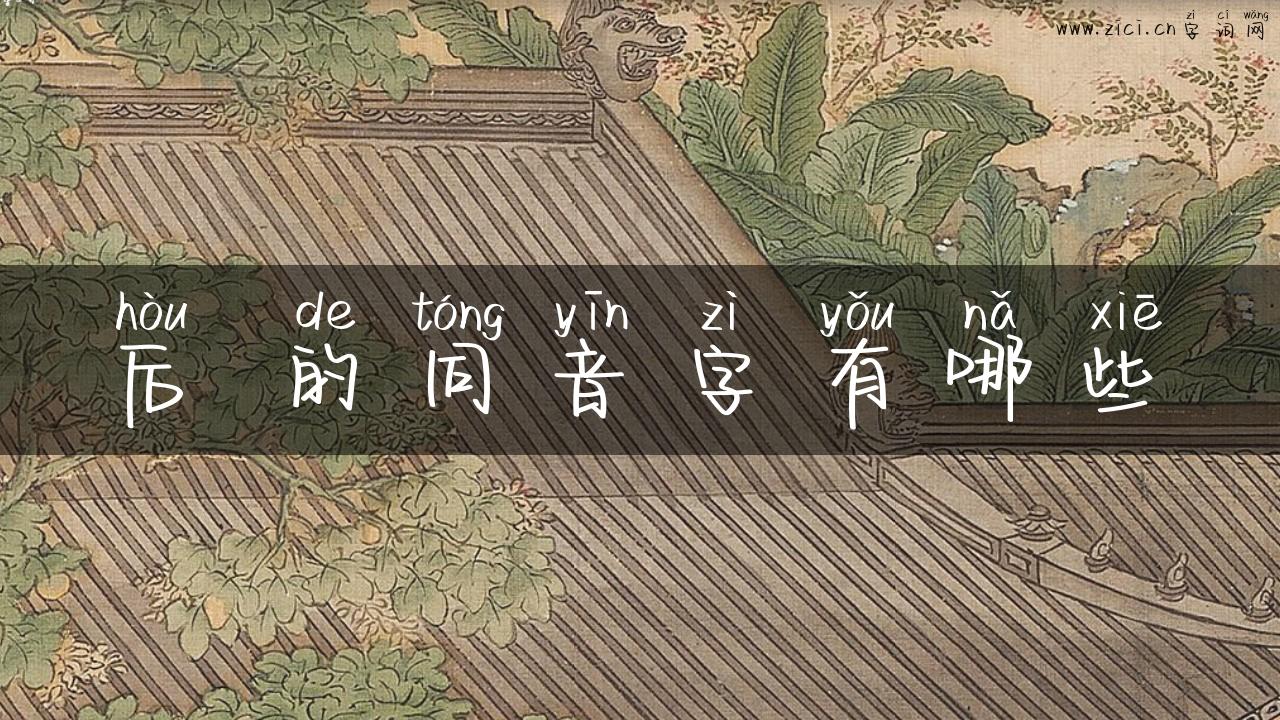 zì cí wǎng
www.zici.cn 字词网
hòu de tóng yīn zì yǒu nǎ xiē
后的同音字有哪些